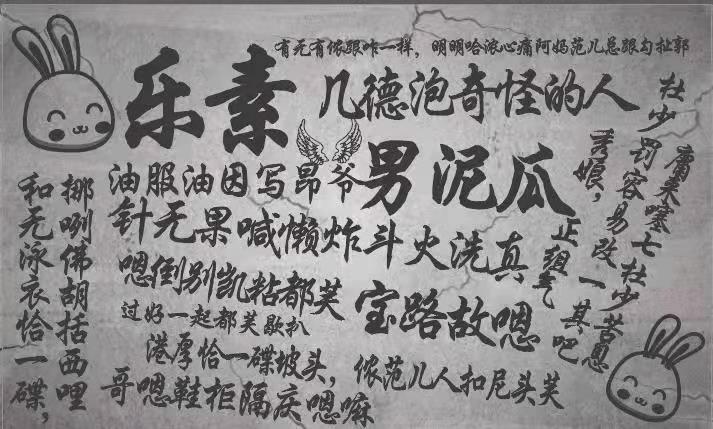 有无有侬跟咋一样，明明哈滚心痛阿妈范儿总跟勾扯郭
乐素
几德泡奇怪的人
男泥瓜
油服油因写昂爷
针无果喊懒炸斗火洗真
嗯倒别凯粘都芙
过好一起都芙歇扒
宝路故嗯
港厚恰一碟坡头，
哥嗯鞋柜隔庆嗯嘛
侬范儿人扣尼头芙
挪咧佛胡括西哩
和无泳衣恰一碟，
秀娘，
正组气
杜少罚容易改一其吧
膚来嚟七杜少苦恳